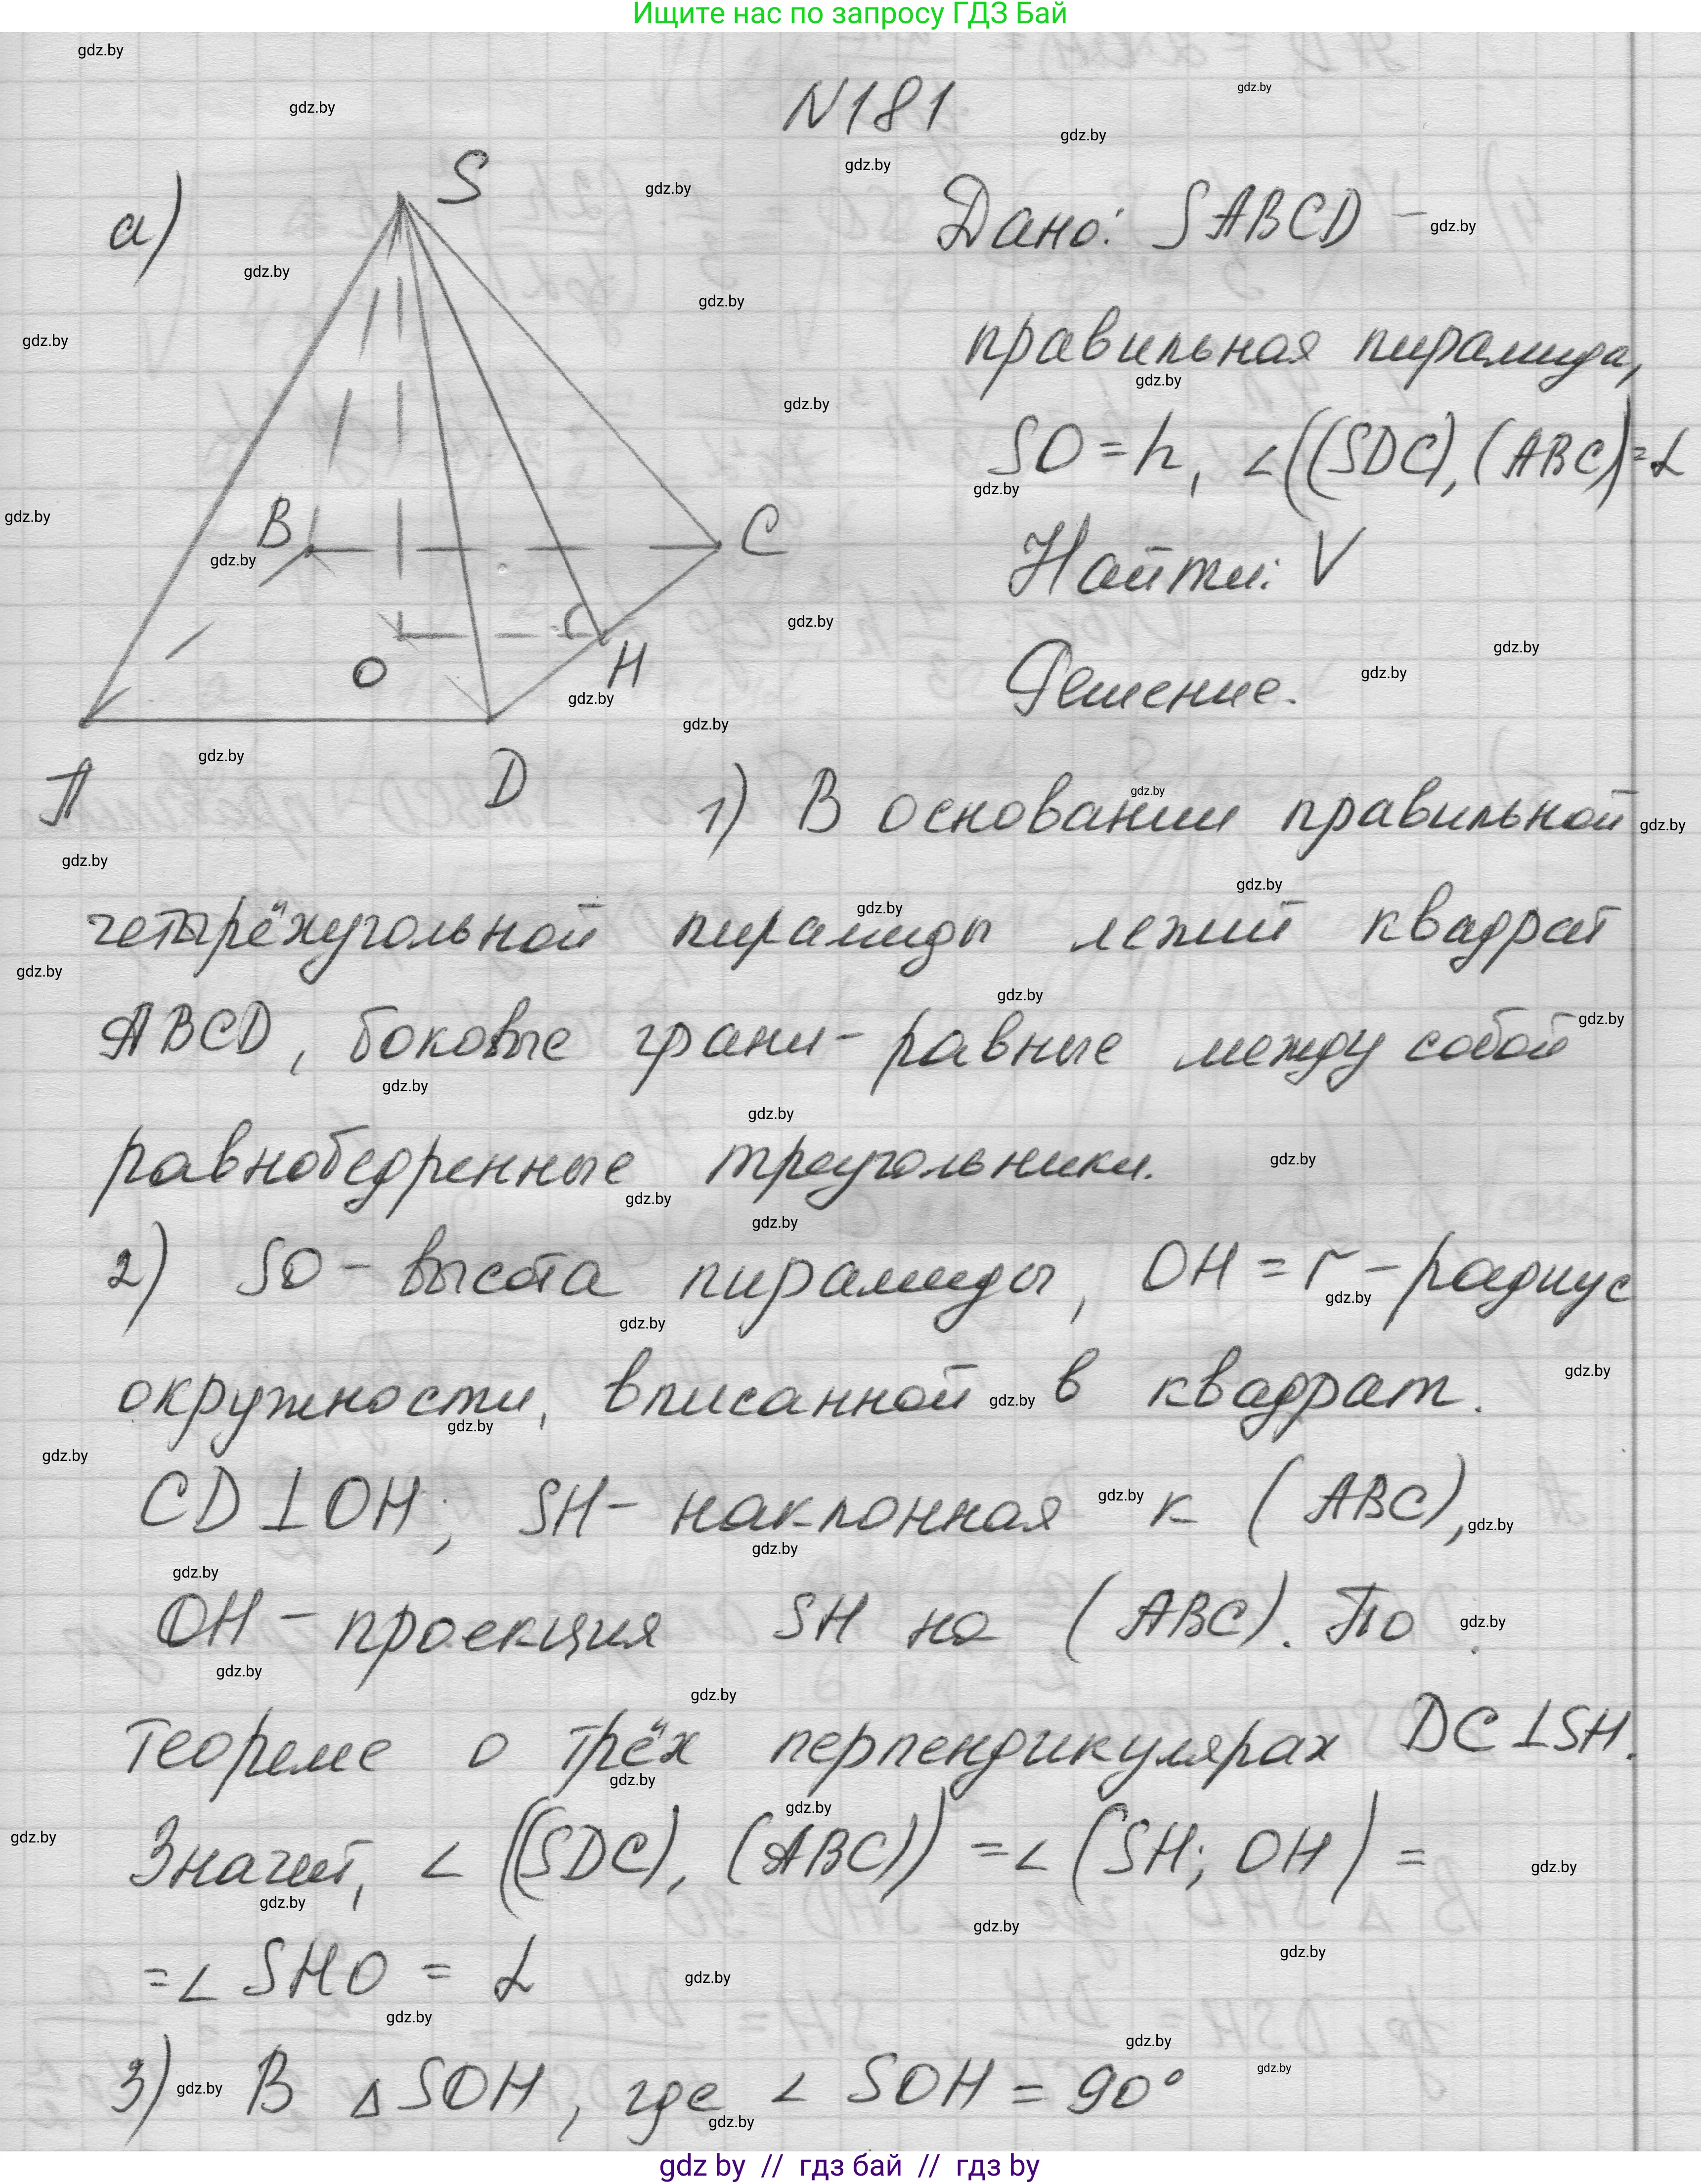 Ищите нас по запросу ГДЗ Бай
N181
а)
S
B
C
O
H
A
D
Дано: SABCD –
правильная пирамида,
SO = h, ∠((SDC), (ABC) = α
Найти: V
Решение.
1) В основании правильной
четырёхугольной пирамиды лежит квадрат
ABCD, боковые грани – равные между собой
равнобедренные треугольники.
2) SO – высота пирамиды, OH = r – радиус
окружности, вписанной в квадрат.
CD ⊥ OH; SH – наклонная к (ABC),
OH – проекция SH на (ABC). По
теореме о трёх перпендикулярах DC ⊥ SH.
Значит, ∠((SDC), (ABC)) = ∠(SH; OH) =
= ∠ SHO = α
3) В Δ SOH, где ∠ SOH = 90°
gdz by // гдз бай // гдз by